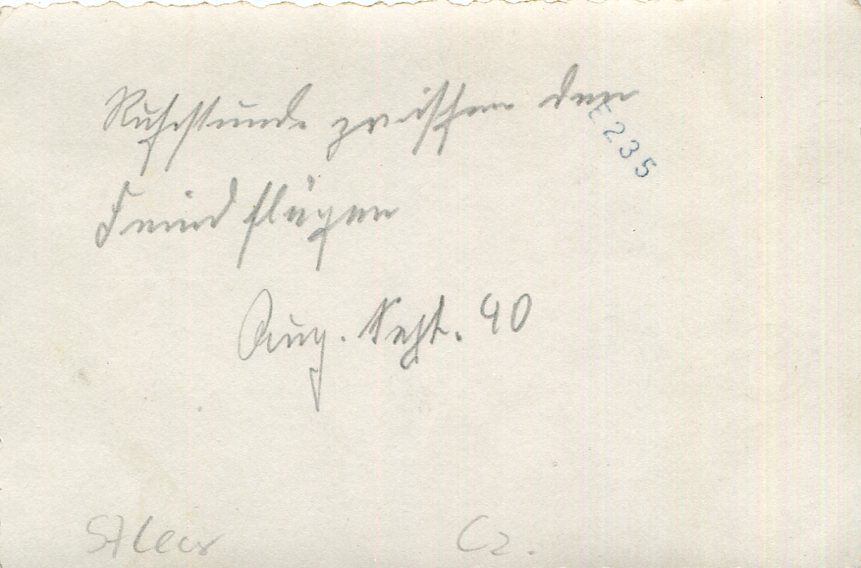 Ruhestunde zwischen den
E235
Feindflügen
Aug. Sept. 40
Cz.